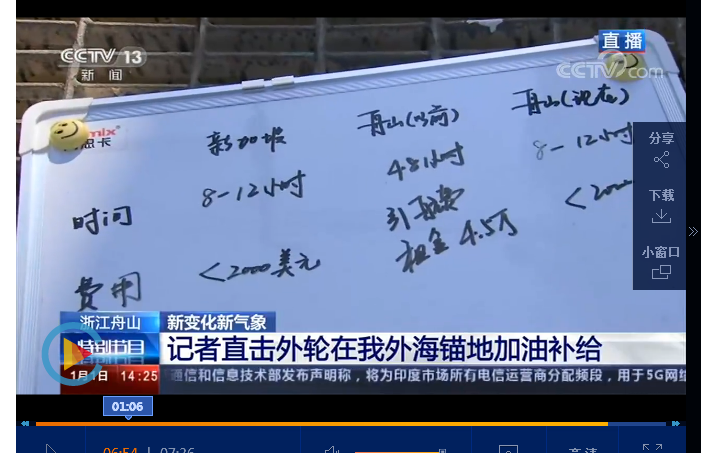 CCTV 13
新闻
直播
CCTV.com
mix
思卡
新加坡
舟山(以前)
舟山(现在)
时间
8-12小时
48小时
8-12小时
费用
<2000美元
引航费
租金4.5万
<2000
分享
下载
小窗口
浙江舟山
新变化新气象
特别节目
记者直击外轮在我外海锚地加油补给
1月1日 14:25
通信和信息技术部发布声明称，将为印度市场所有电信运营商分配频段，用于5G网络
01:06
06:54 | 07:36
高清